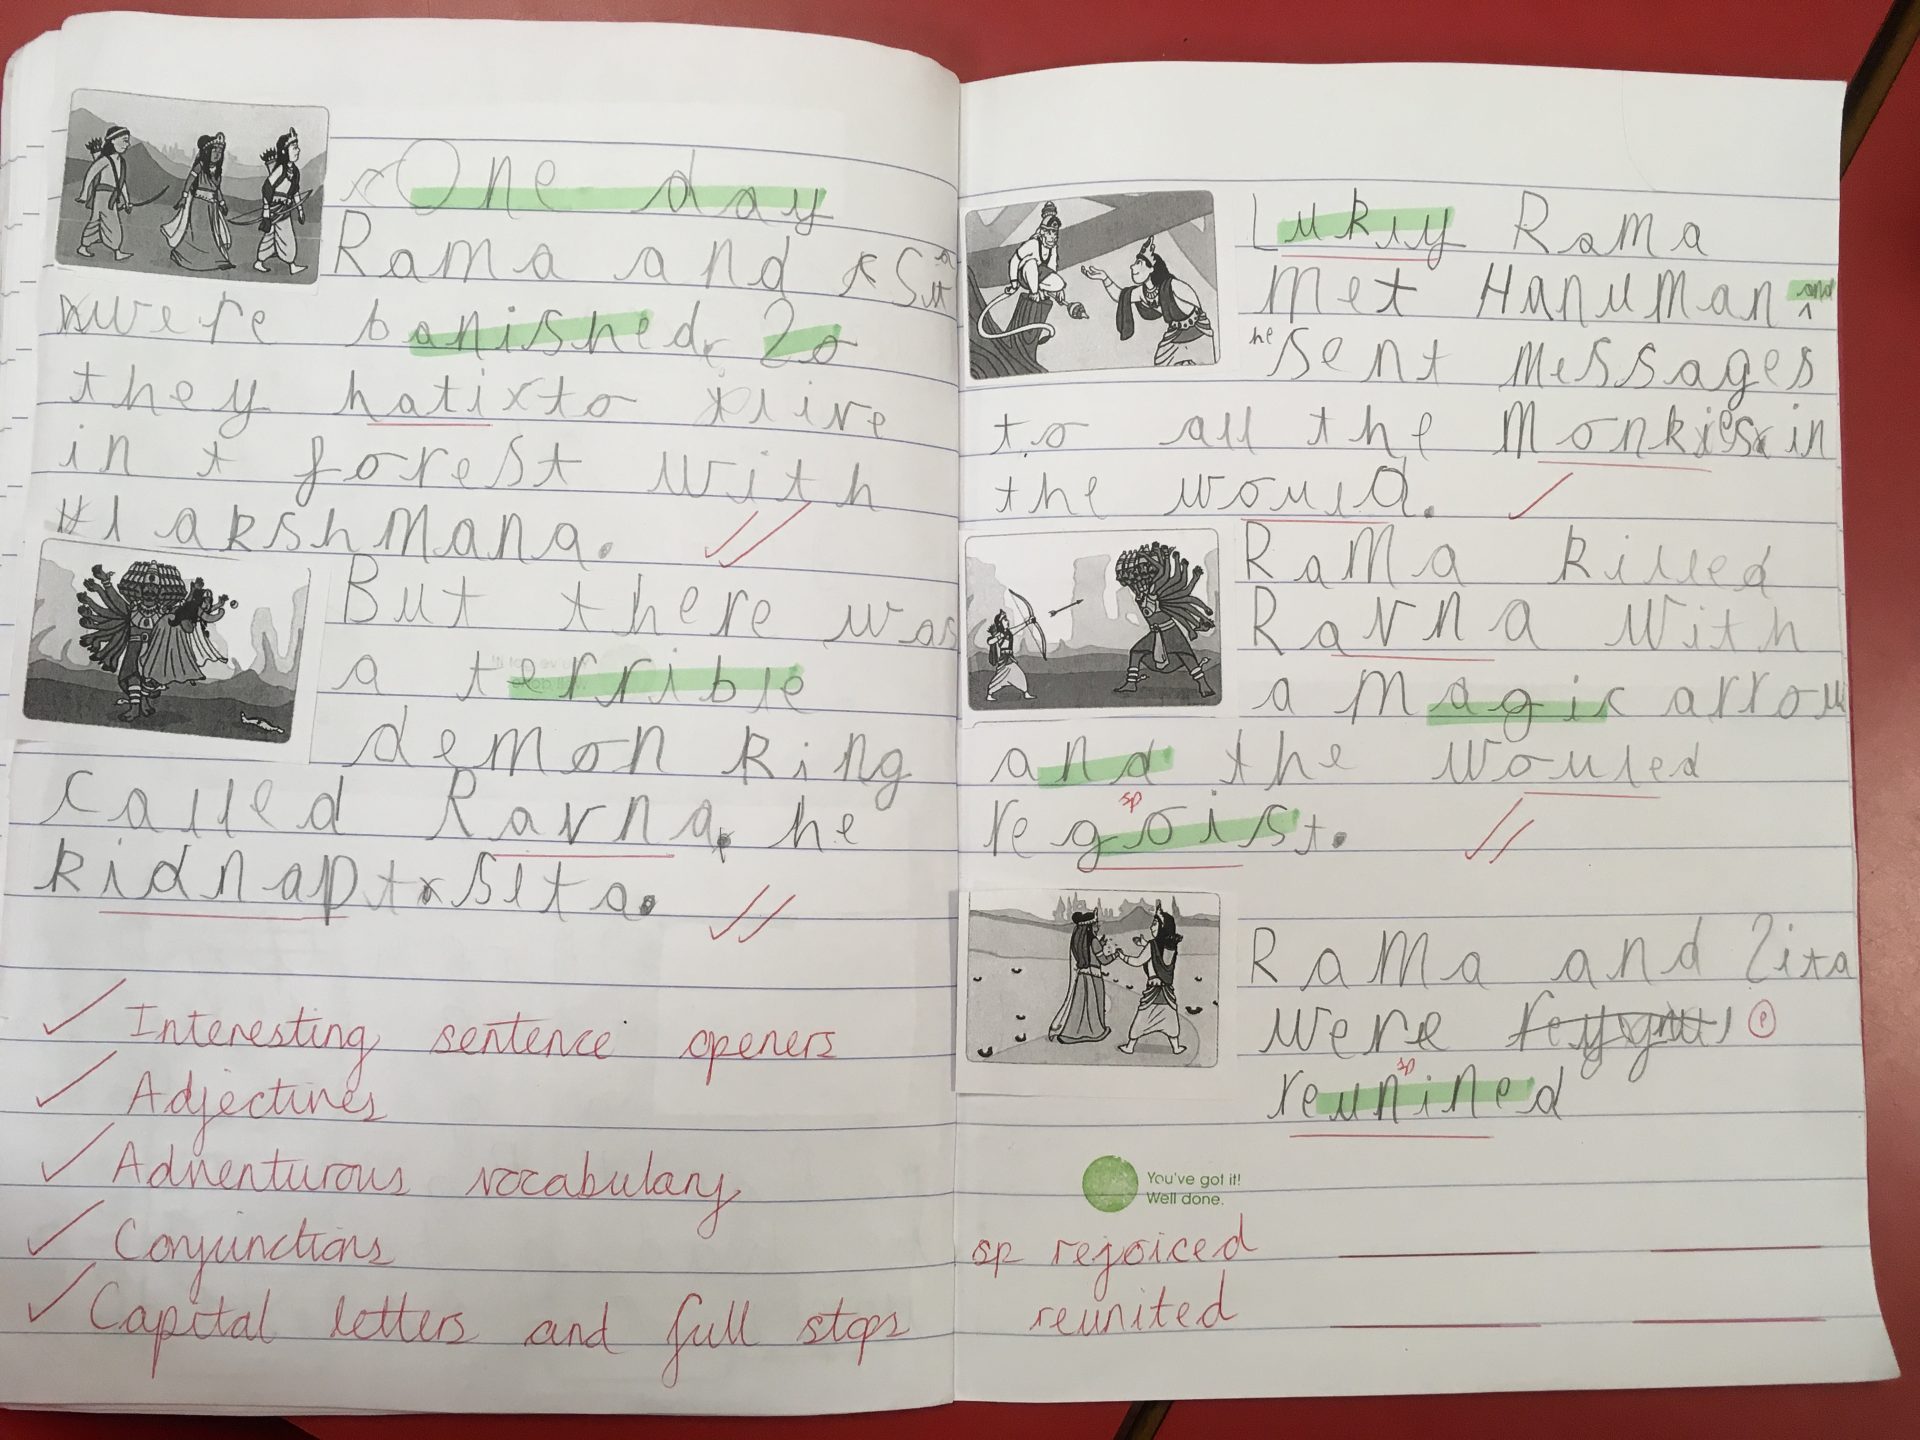 One day
Rama and Sita
were banished. So
they hati to live
in t forest with
lakshmana.
But there was
a terrible
demon king
called Ravna. he
kidnapt Sita.
Interesting sentence openers
Adjectives
Adventurous vocabulary
Conjunctions
Capital letters and full stops
Lukiy Rama
met Hanuman and
he sent messages
to all the monkies in
the would.
Rama killed
Ravna with
a magic arrow
and the wouled
sp
regoist.
Rama and Zita
were
sp
reunined
You've got it!
Well done.
sp rejoiced
reunited